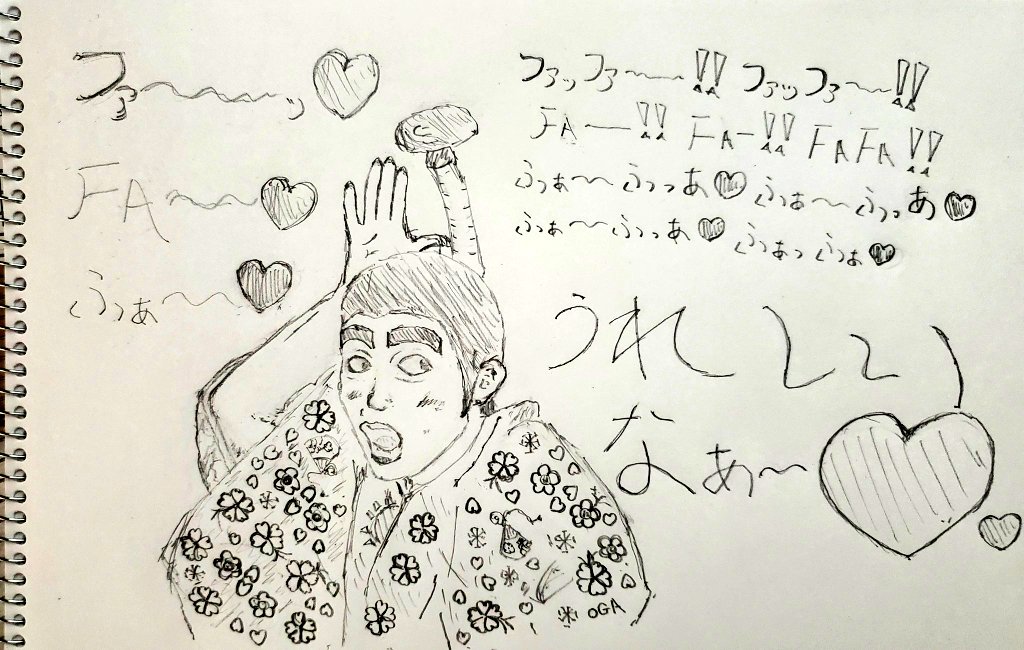 ファ〜〜〜ッ♥
FA〜〜♥
ふっぁ〜〜♥
ファッファ〜〜!! ファッファ〜〜!!
FA一!! FA一!! FAFA!!
ふっぁ〜〜ふっっあ♥ ふっぁ〜〜ふっっあ♥
ふっぁ〜〜ふっっあ♥ ふっぁっふっぁ♥
うれしいぃ
なぁ〜♥
oGA